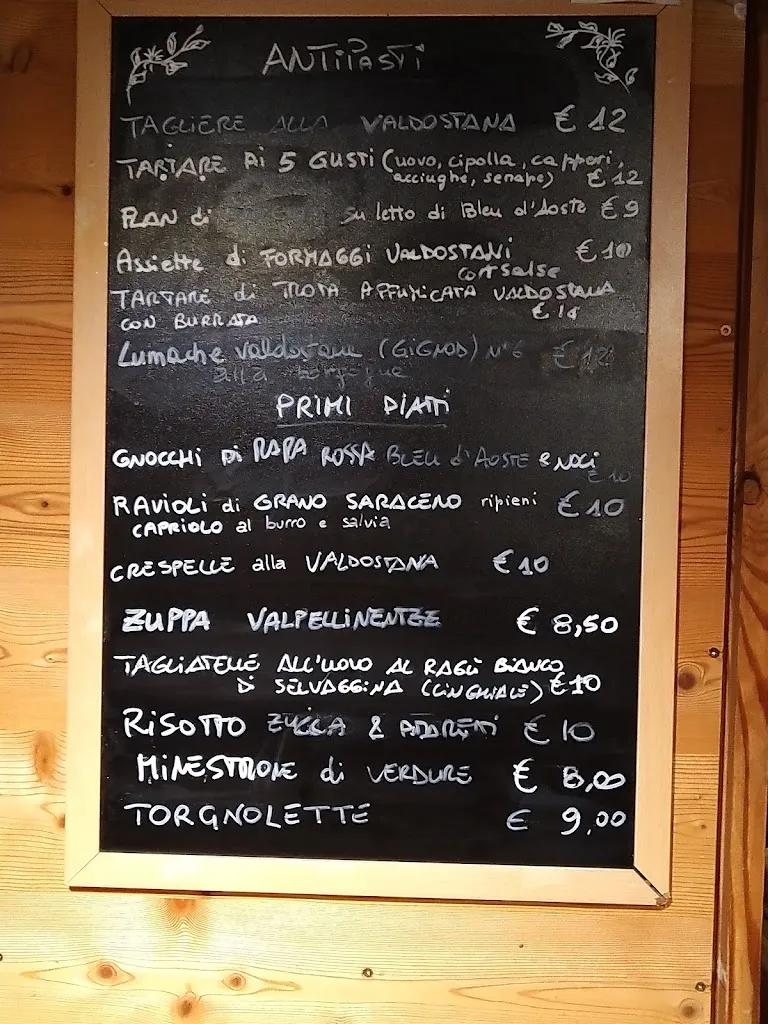 ANTIPASTI
TAGLIERE ALLA VALDOSTANA € 12
TARTARE AI 5 GUSTI (uovo, cipolla, capperi,
acciughe, senape) € 12
FLAN di su letto di Bleu d'Aoste € 9
Assiette di FORMAGGI VALDOSTANI € 10
con salse
TARTARE di TROTA AFFUMICATA VALDOSTANA
CON BURRATA
Lumache valdostane (GIGNOD) N°6 € 12
alla
PRIMI PIATTI
GNOCCHI DI RAPA ROSSA BLEU d'AOSTE & NOCI
€ 10
RAVIOLI di GRANO SARACENO ripieni € 10
CAPRIOLO al burro e salvia
CRESPELLE alla VALDOSTANA € 10
ZUPPA VALPELLINENTZE € 8,50
TAGLIATELLE ALL'UOVO AL RAGÙ BIANCO
DI SELVAGGINA (CINGHIALE) €10
RISOTTO ZUCCA & € 10
MINESTRONE di VERDURE € 8,00
TORGNOLETTE € 9,00